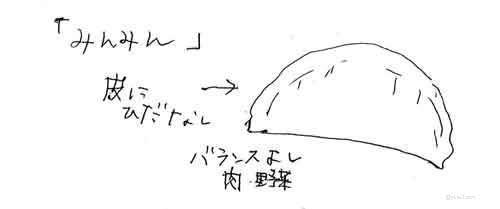 「みんみん」
皮に
ひだなし
バランスよし
肉・野菜